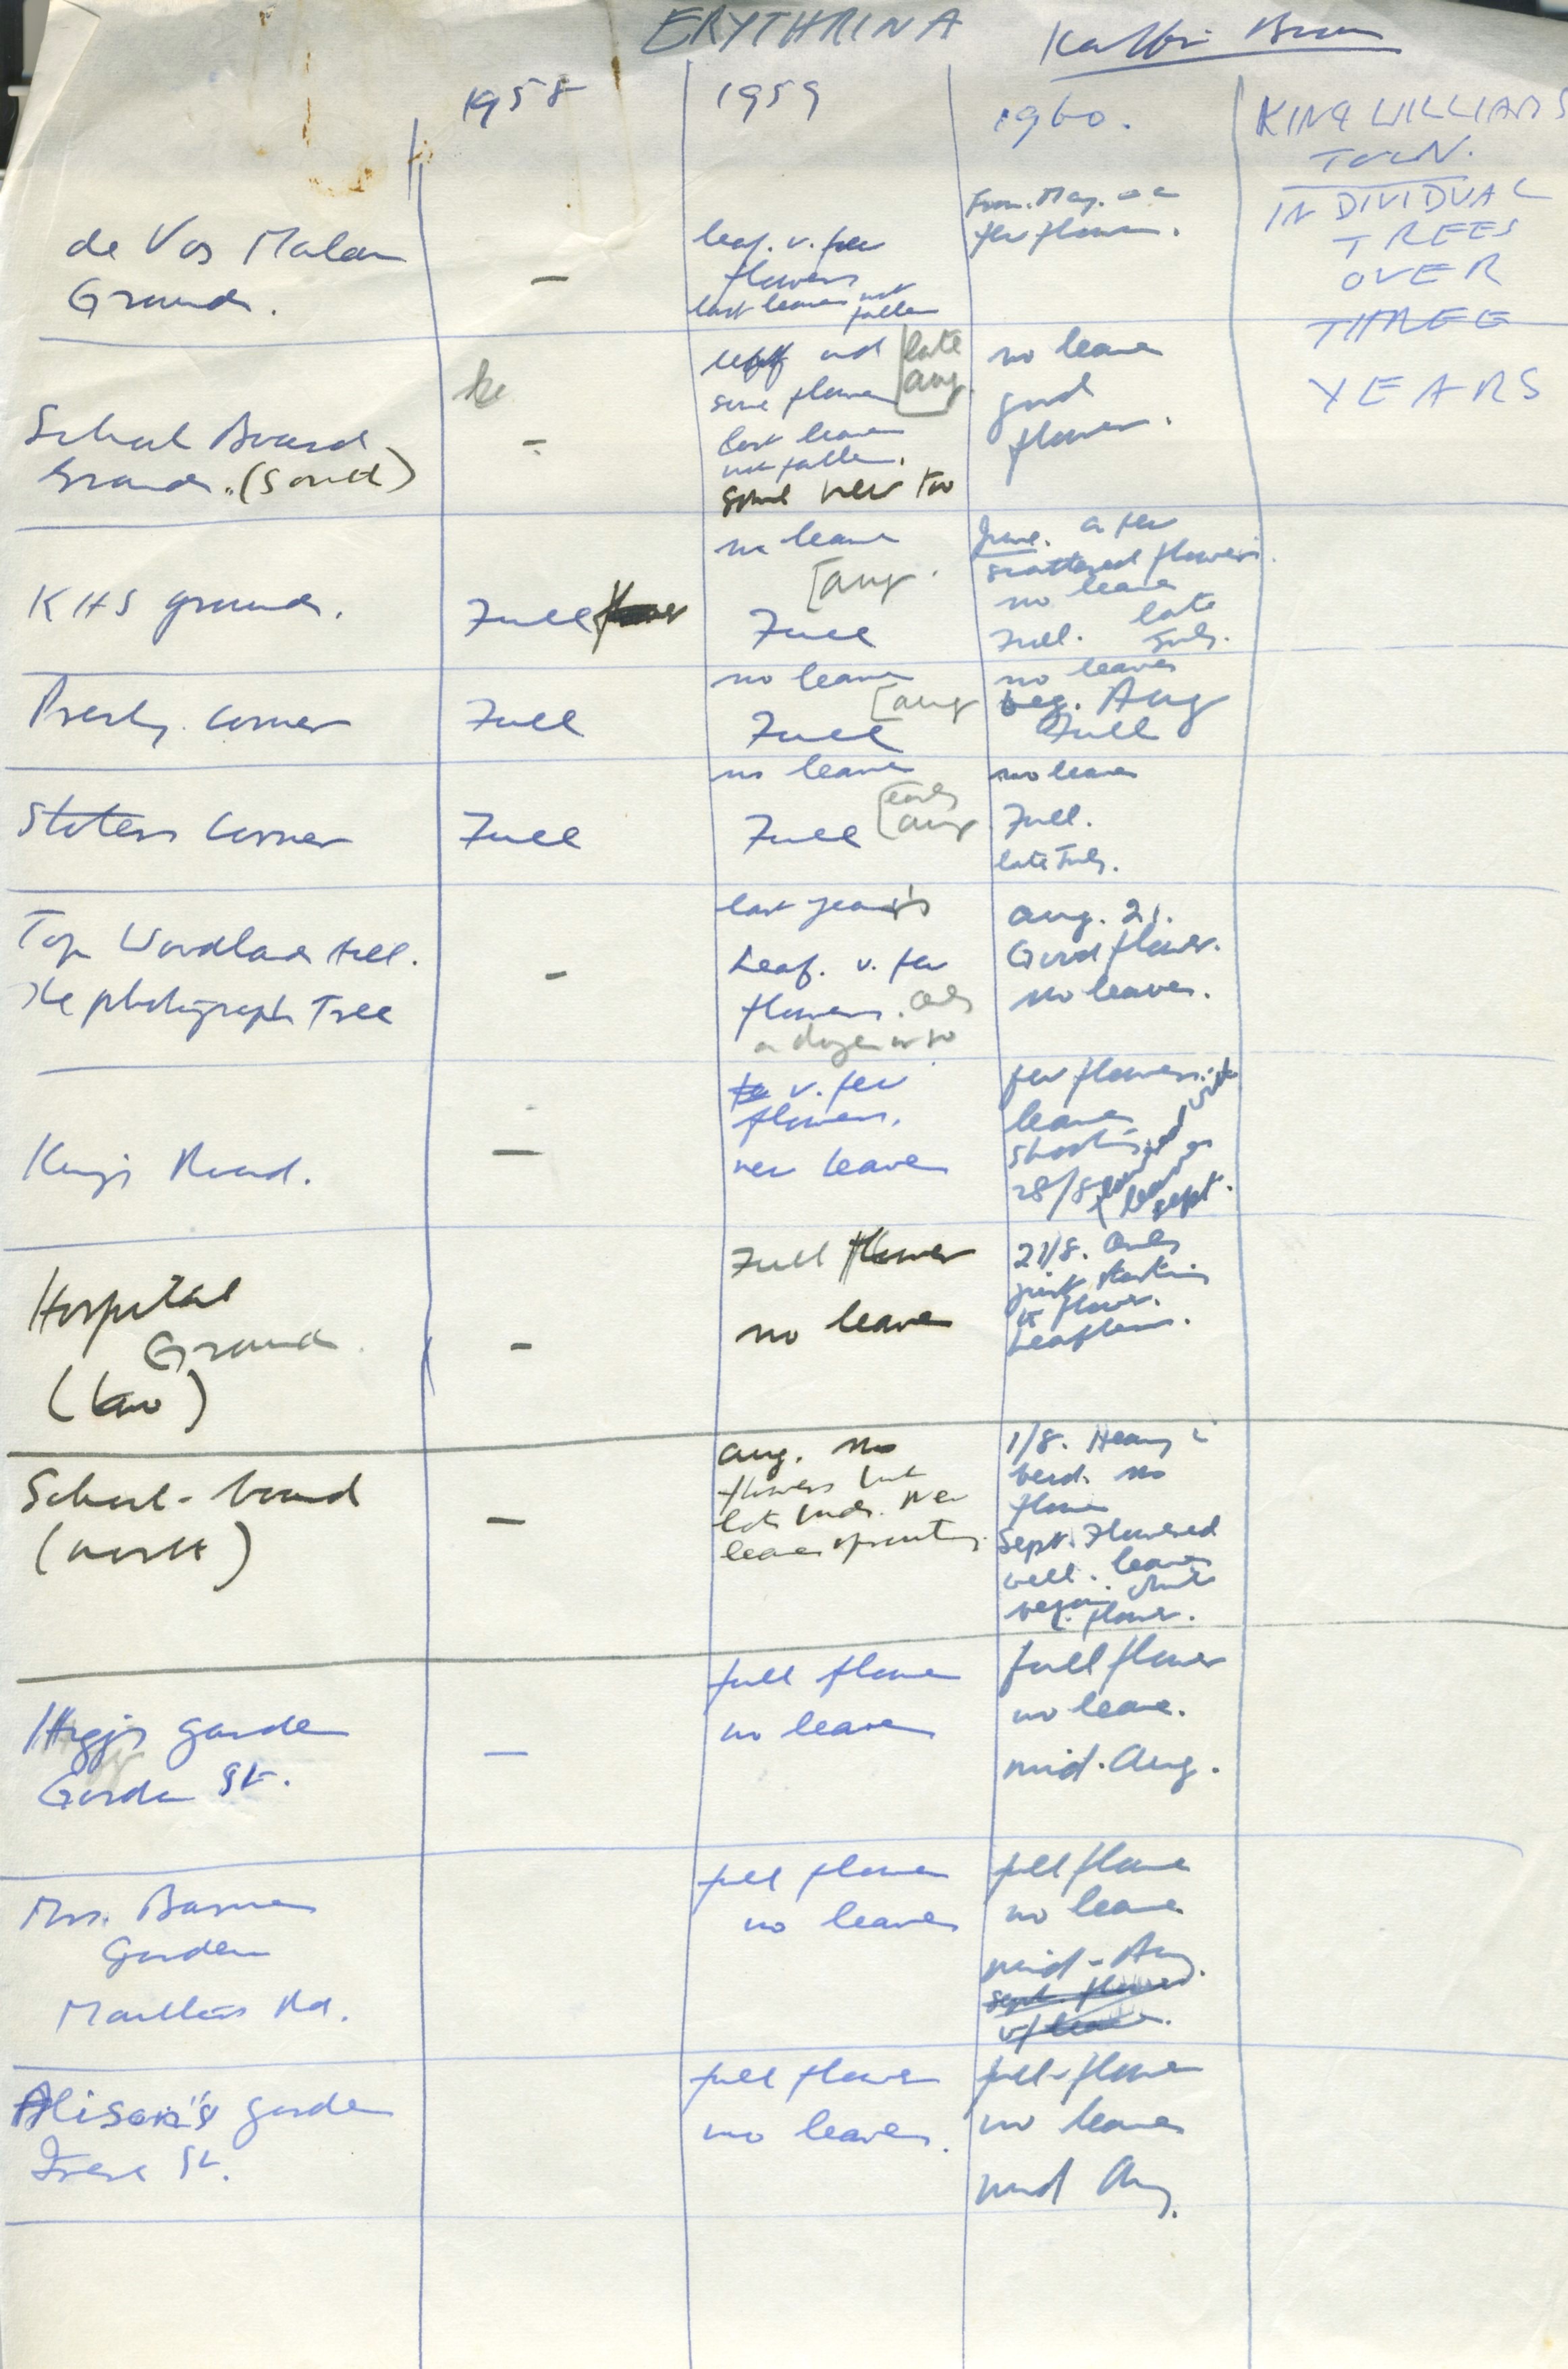 ERYTHRINA Kaffir Boom
1958 1959 1960.
KING WILLIAMS
TOWN.
INDIVIDUAL
TREES
OVER
THREE
YEARS
de Vos Malan
Grounds.
-
leaf. v. few
flowers
last leaves not
fallen
From. May. on a
few flowers.
School Board
Grounds. (South)
-
old
some flowers
[late
aug.
last leaves
not fallen.
some new too
no leaves
good
flower.
KHS grounds.
Full flower
no leaves
[aug.
Full
June. a few
scattered flowers.
no leaves
Full. late
July.
Presby. corner
Full
no leaves
[aug
Full
no leaves
beg. Aug
Full
corner
Full
no leaves
[early
aug
Full
no leaves
Full.
late July.
Top Woodlands Hill.
The photograph Tree
-
last year's
Leaf. v. few
flowers. Only
a dozen or so
Aug. 21.
Good flower.
no leaves.
Kings Road.
-
v. few
flowers.
new leaves
few flowers.
leaves
shooting
28/8
sept.
Hospital
Grounds
-
Full flower
no leaves
21/8. Only
just starting
to flower.
Leafless.
School-board
(north)
-
Aug. no
flowers but
lots buds. New
leaves sprouting.
1/8. Heavy in
bud. no
flowers
Sept. Flowered
well. leaves
began while
flower.
Higgs garden
Gordon St.
-
full flower
no leaves
full flower
no leaves.
mid. Aug.
Mrs. Barnes
Garden
Rd.
full flower
no leaves
full flower
no leaves
mid-Aug.
sept. flower
Alison's garden
Frere St.
full flower
no leaves.
full-flower
no leaves
mid Aug.